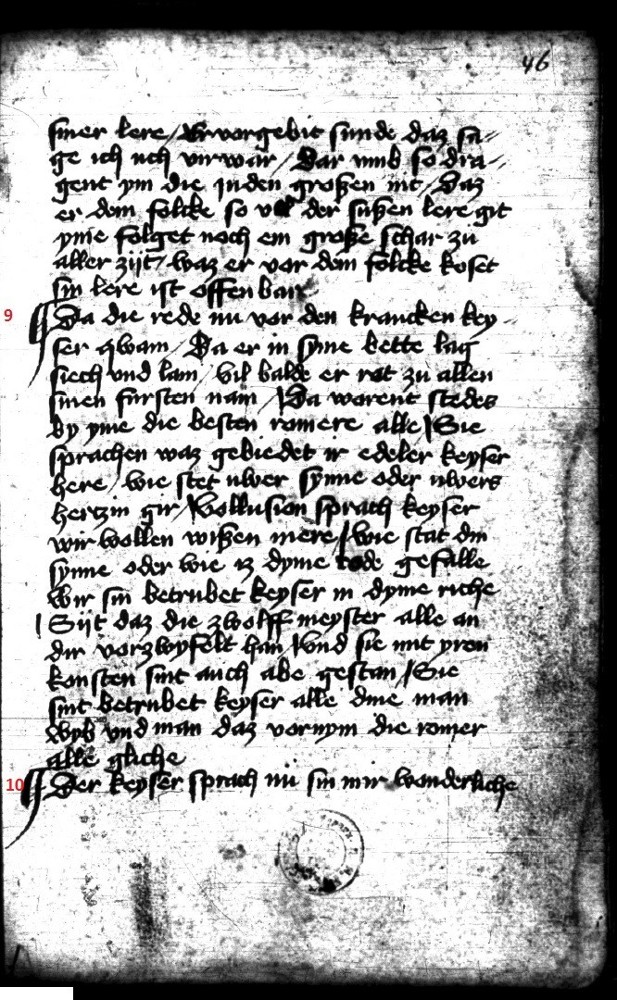 46
siner lere / Er vorgebit sunde daz sa-
ge ich uch vir war / Dar vmb so dra-
gent ym die Juden großen nit / Daz
er dem folcke so vil der sußen lere git
yme folget noch ein große schar zu
aller zijt / waz er vor dem folcke koset
sin lere ist offenbair
9 Da die rede nu vor den krancken key-
ser qwam / Da er in syme bette lag
siech vnd lam / vil balde er rat zu allen
sinen fursten nam / Da worent stedes
by yme die besten romere alle / Sie
sprachen waz gebiedet ir edeler keyser
here / wie stet uwer synne oder uwers
hertzin gir / Vollusion sprach keyser
wir wollen wißen mere / wie stat din
synne oder wie iz dyme tode gefalle
wir sin betrubet keyser in dyme riche
/ Sijt daz die zwolff meyster alle an
dir vorzwyfelt han / vnd sie mit yren
konsten sint auch abe gestan / Sie
sint betrubet keyser alle dine man
wyb vnd man daz vornym die romer
alle gliche
10 Der keyser sprach nu sin mir wonderliche